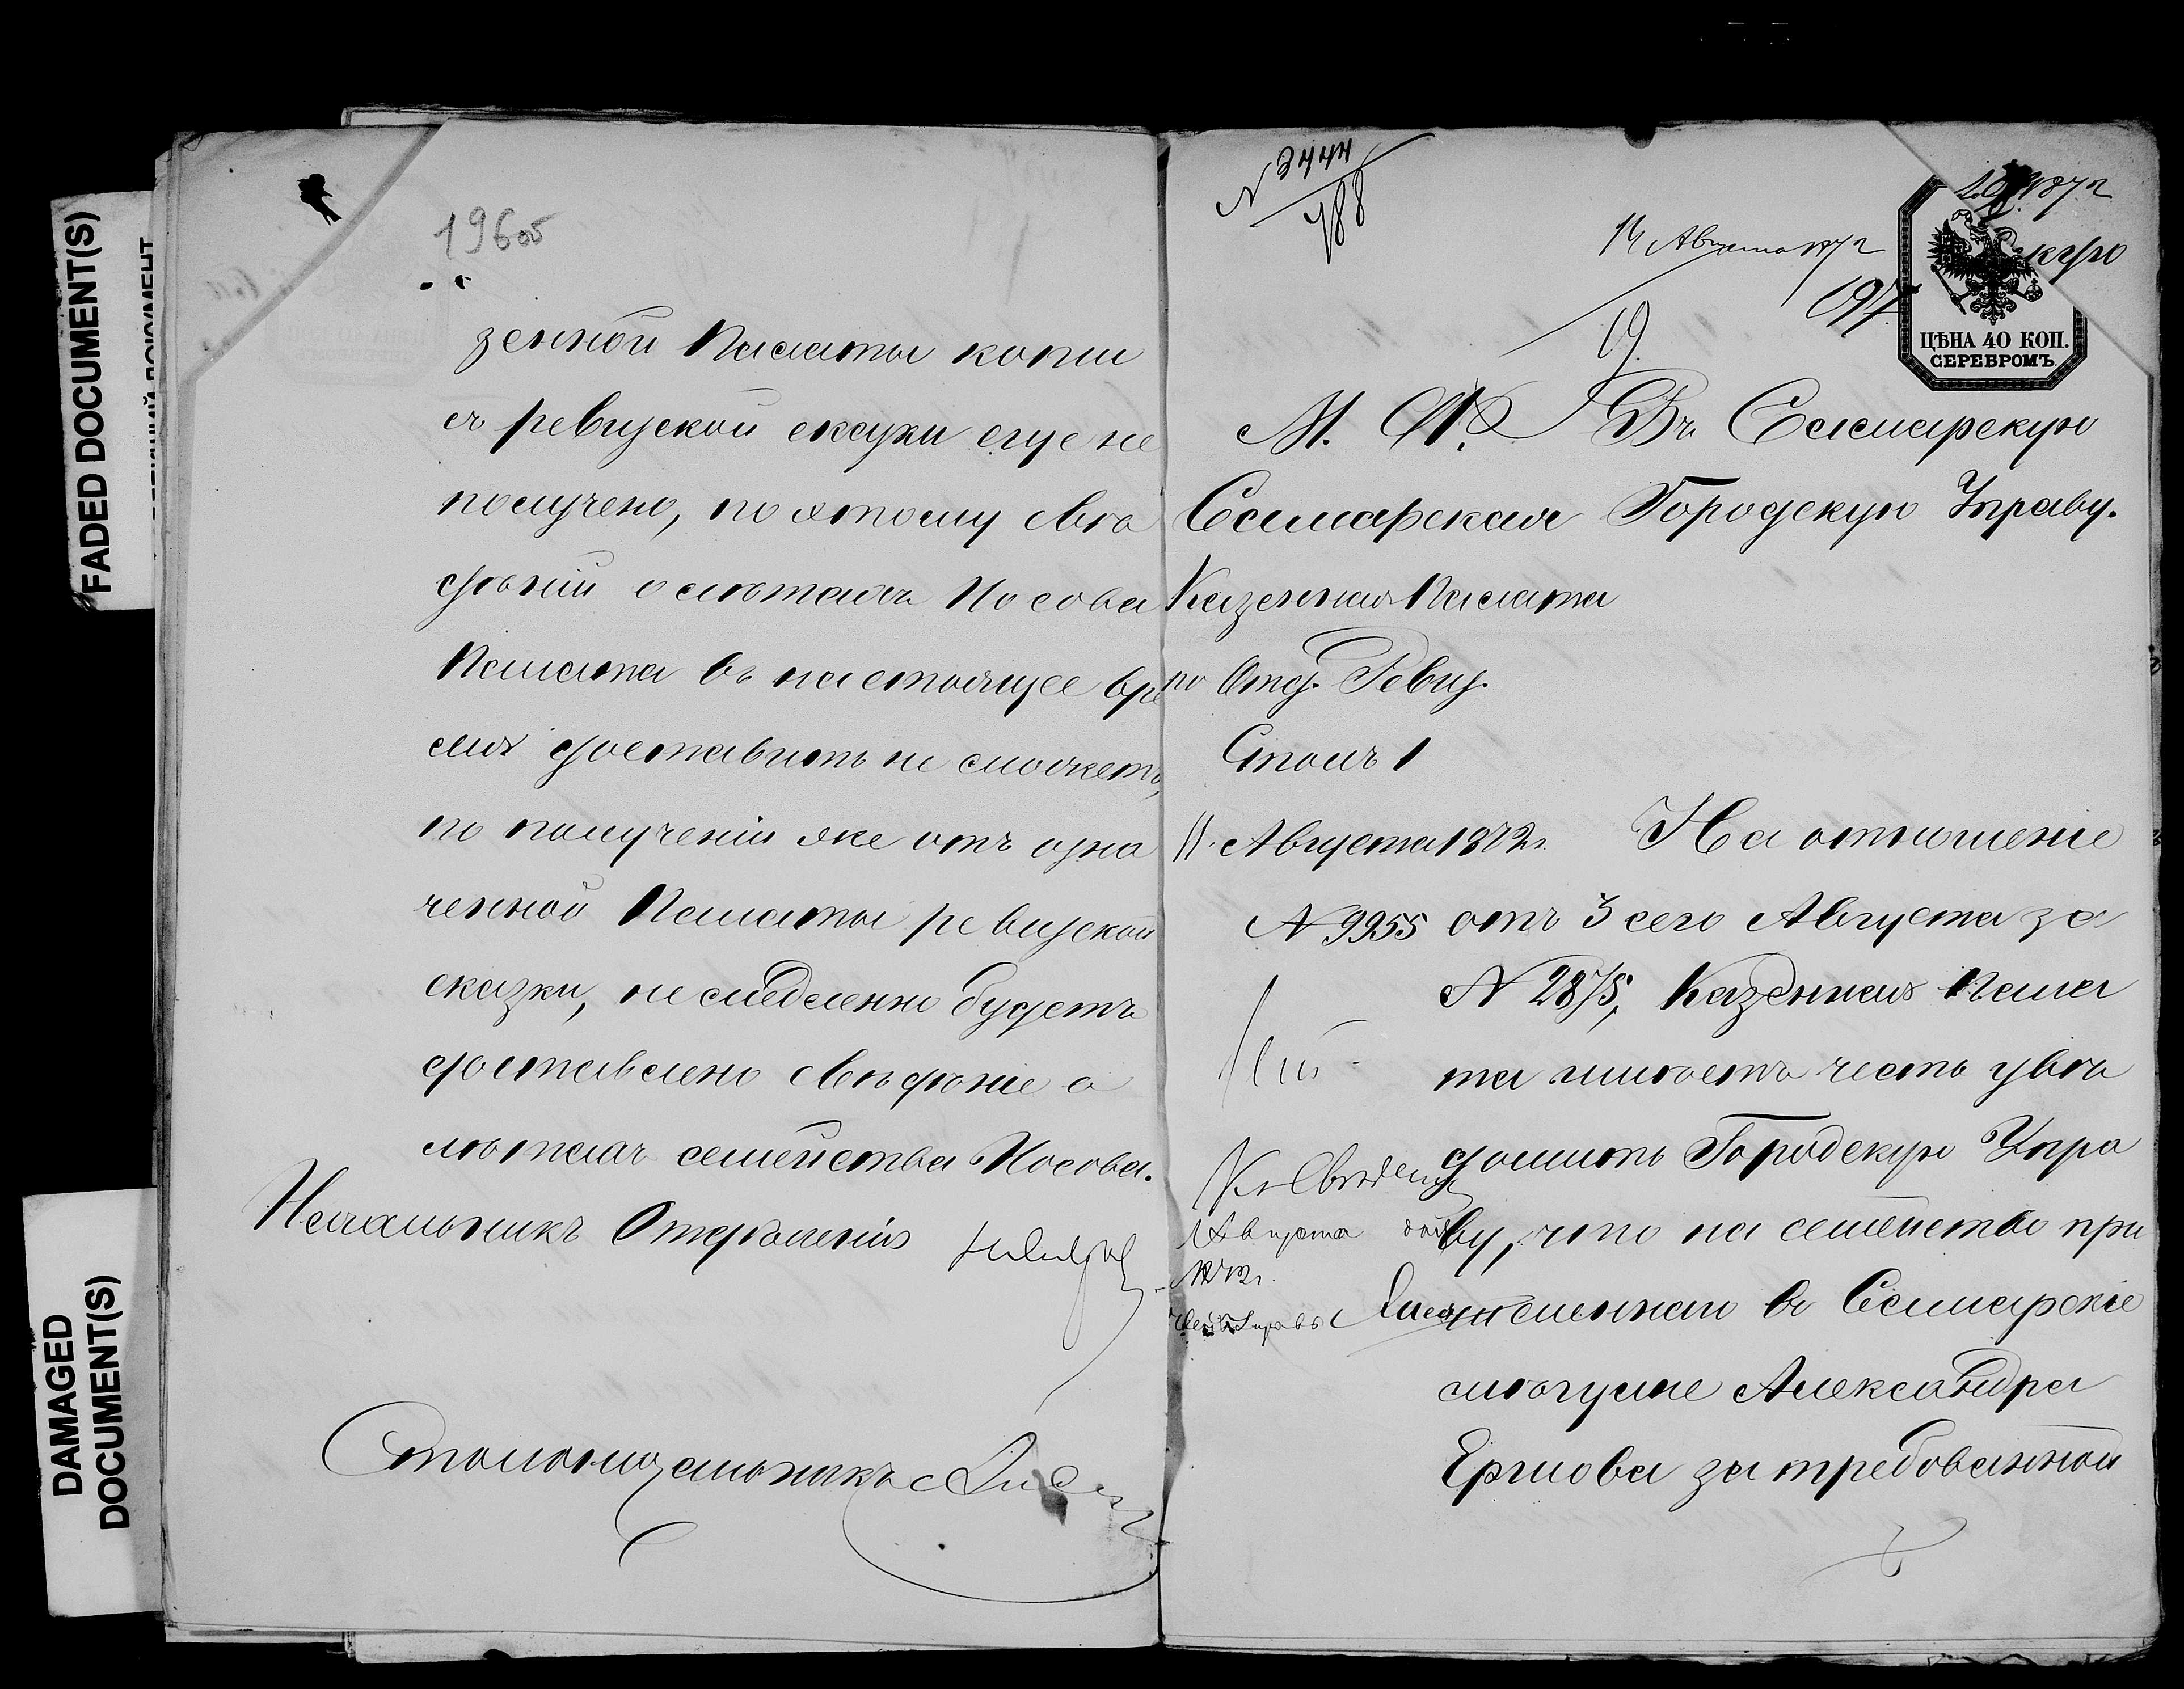 FADED DOCUMENT(S)
DAMAGED
DOCUMENT(S)
196об
зенной Палаты копіи
съ ревизской сказки еще не
получено, по этому свѣ
дѣній о лѣтахъ Носова
Палата въ настоящее вре
мя доставить не можетъ,
по полученіи же отъ озна
ченной Палаты ревизской
сказки, немедленно будетъ
доставлено свѣдѣніе о
лѣтахъ семейства Носова.
Начальникъ Отдѣленія
Столоначальникъ
N 3444
188
14 Августа
197
ЦѢНА 40 КОП.
СЕРЕБРОМЪ.
М. Ф. Въ Самарскую
Самарская Городскую Управу.
Казенная Палата
по Отд. Ревиз.
Столъ 1
11 Августа 1872 г. На отношеніе
N 9955 отъ 3 сего Августа за
N 2875, Казенная Пала
та имѣетъ честь увѣ
домить Городскую Упра
Къ
Августа
ву, что на семейство при
численнаго въ Самарскіе
мѣщане Александра
затребованной